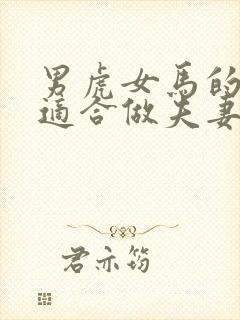 男虎女馬的
適合做夫妻
君亦筠